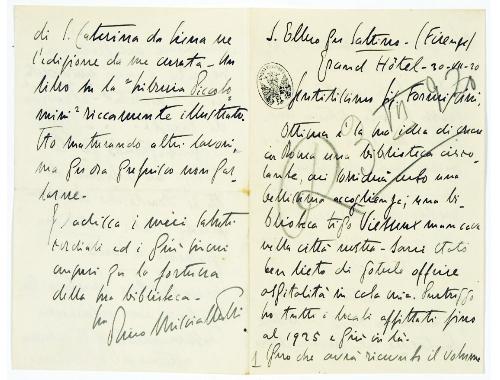 S. Ellero per Saltino - (Firenze)
Grand Hôtel - 30-VII-20
Gentilissimo Sig. Formiggini,
Ottima la sua idea di creare
in Roma una biblioteca circo-
lante, qui
bellissima accoglienza; una bi-
blioteca tipo Vieusseux mancava
nella città nostra - Sarei stato
ben lieto di poterle offrire
ospitalità in casa mia. Purtroppo
ho tutti i locali affittati fino
al 1925 e più in là.
1 Spero che avrà ricevuto il volume
di S. Caterina da Siena ne
l'edizione da me curata - Un
libro su la "Libreria Piccolo-
mini" riccamente illustrato.
Sto maturando altri lavori,
ma per ora preferisco non par-
larne.
Gradisca i miei saluti
cordiali ed i più sinceri
auguri per la fortuna
della sua biblioteca -
Suo Piero Misciattelli